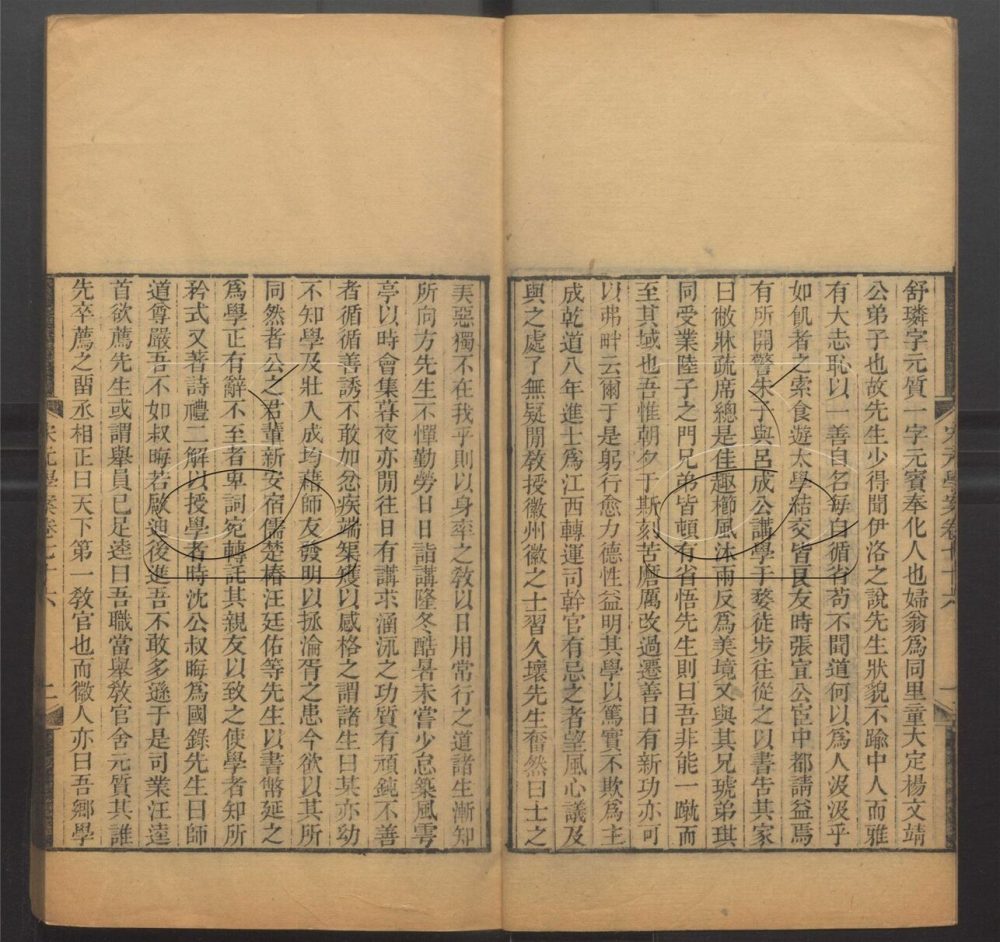 舒璘字元質一字元賓奉化人也婦翁爲同里童大定楊文靖
公弟子也故先生少得聞伊洛之說先生狀貌不踰中人而雅
有大志恥以一善自名每自循省苟不聞道何以爲人汲汲乎
如飢者之索食遊太學結交皆良友時張宣公宦中都請益焉
有所開警朱子與呂成公講學于婺徒步往從之以書告其家
曰敝牀疏席總是佳趣櫛風沐雨反爲美境又與其兄琥弟琪
同受業陸子之門兄弟皆頓有省悟先生則曰吾非能一蹴而
至其域也吾惟朝夕于斯刻苦磨厲改過遷善日有新功亦可
以弗畔云爾于是躬行愈力德性益明其學以篤實不欺爲主
成乾道八年進士爲江西轉運司幹官有忌之者望風心議及
與之處了無疑閒敎授徽州徽之士習久壞先生奮然曰士之
宋元學案卷七十六
一
美惡獨不在我乎則以身率之敎以日用常行之道諸生漸知
所向方先生不憚勤勞日日詣講隆冬酷暑未嘗少怠築風雩
亭以時會集暮夜亦閒往日有講求涵泳之功質有頑鈍不善
者循循善誘不敢加忿疾端榘矱以感格之謂諸生曰某亦幼
不知學及壯入成均藉師友發明以拯淪胥之患今欲以其所
同然者公之君輩新安宿儒楚椿汪廷佑等先生以書幣延之
爲學正有辭不至者卑詞宛轉託其親友以致之使學者知所
矜式又著詩禮二解以授學者時沈公叔晦爲國錄先生曰師
道尊嚴吾不如叔晦若啟迪後進吾不敢多遜于是司業汪逵
首欲薦先生或謂舉員已足逵曰吾職當舉敎官舍元質其誰
先卒薦之留丞相正曰天下第一敎官也而徽人亦曰吾鄕學
宋元學案卷七十六
二